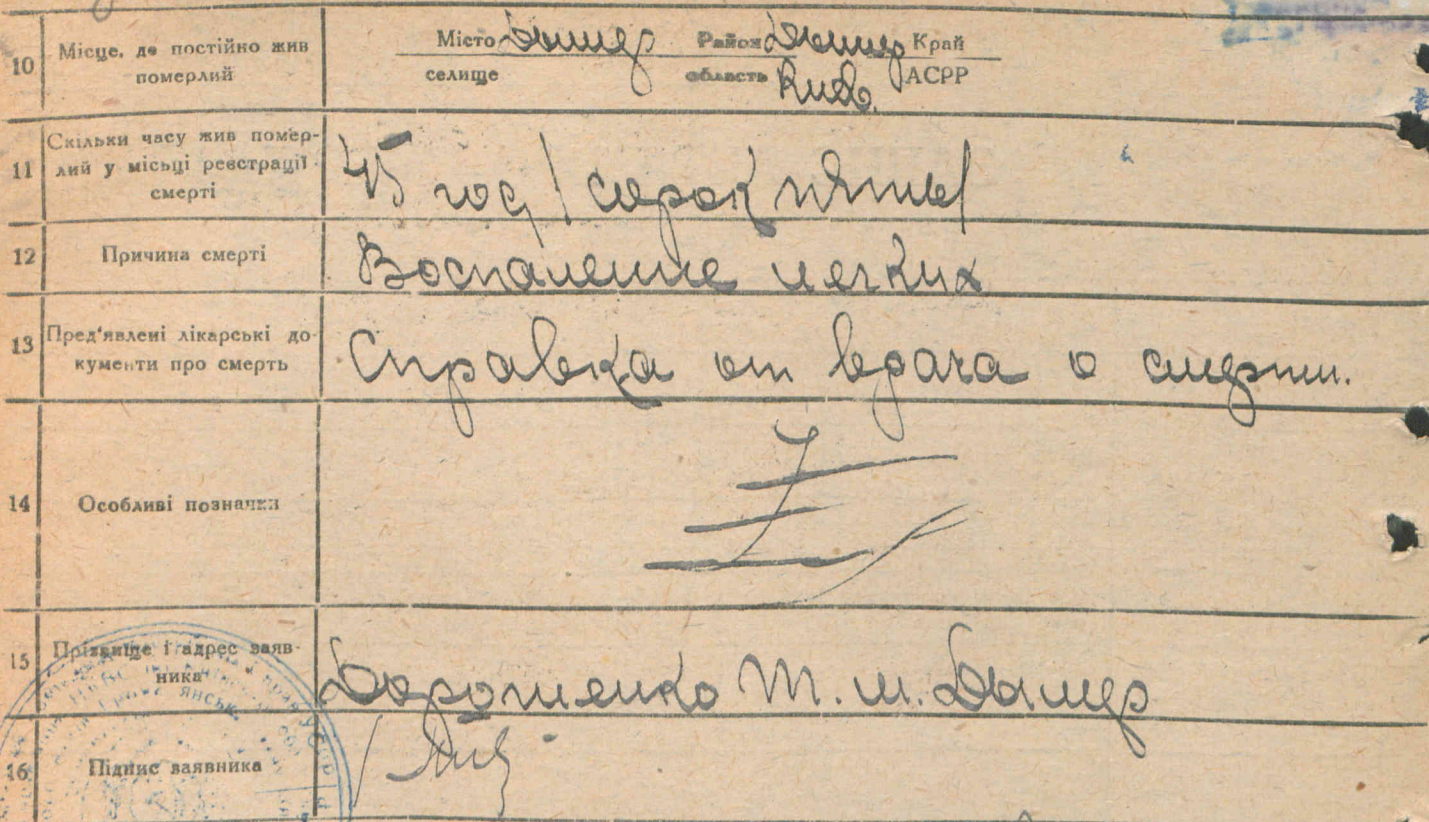 10 Місце, де постійно жив померлий
Місто Дымер Район Дымер Край
селище область Киев. АСРР
11 Скільки часу жив помер-
лий у місьці реєстрації
смерті
45 год / сорок пять /
12 Причина смерті Воспаление легких
13 Пред'явлені лікарські до-
кументи про смерть
Справка от врача о смерти.
14 Особливі позначки
15 Прізвище і адрес заяв-
ника
Дорошенко Т. м. Дымер
16 Підпис заявника